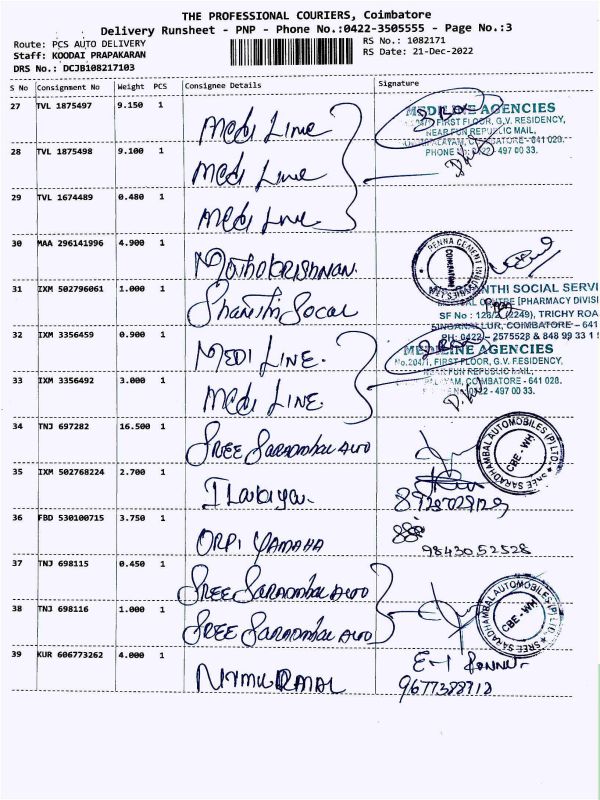 THE PROFESSIONAL COURIERS, Coimbatore
Delivery Runsheet - PNP - Phone No.:0422-3505555 - Page No.:3
Route: PCS AUTO DELIVERY RS No.: 1082171
Staff: KOODAI PRAPAKARAN RS Date: 21-Dec-2022
DRS No.: DCJB108217103
S No Consignment No Weight PCS Consignee Details Signature
27 TVL 1875497 9.150 1
Medi Line
MEDILINE AGENCIES
FIRST FLOOR, G.V. RESIDENCY,
NEAR FUN REPUBLIC MAIL,
COIMBATORE - 641 028.
PHONE 497 00 33.
28 TVL 1875498 9.100 1
Medi Line
29 TVL 1674489 0.480 1
Medi Line
30 MAA 296141996 4.900 1
PENNA CEMENT INDUSTRIES
COIMBATORE
31 IXM 502796061 1.000 1
Shanthi Social
SHANTHI SOCIAL SERVI
MEDICAL CENTRE [PHARMACY DIVISI
SF No : (2249), TRICHY ROA
SINGANALLUR, COIMBATORE - 641
PH: 0422 - 2575528 & 848 99 33 1
32 IXM 3356459 0.900 1
MEDI LINE.
MEDILINE AGENCIES
No.204/1, FIRST FLOOR, G.V. RESIDENCY,
NEAR FUN REPUBLIC MAIL,
COIMBATORE - 641 028.
- 497 00 33.
33 IXM 3356492 3.000 1
Medi LINE.
34 TNJ 697282 16.500 1
SREE Saradmbal Auto
SREE SARADHAMBAL AUTOMOBILES (P) LTD.
CBE - WH
35 IXM 502768224 2.700 1
36 FBD 530100715 3.750 1
ORPI YAMAHA
98430 52528
37 TNJ 698115 0.450 1
SREE Saradmbal Auto
38 TNJ 698116 1.000 1
SREE Saradmbal Auto
SREE SARADHAMBAL AUTOMOBILES (P) LTD.
CBE - WH
39 KUR 606773262 4.000 1